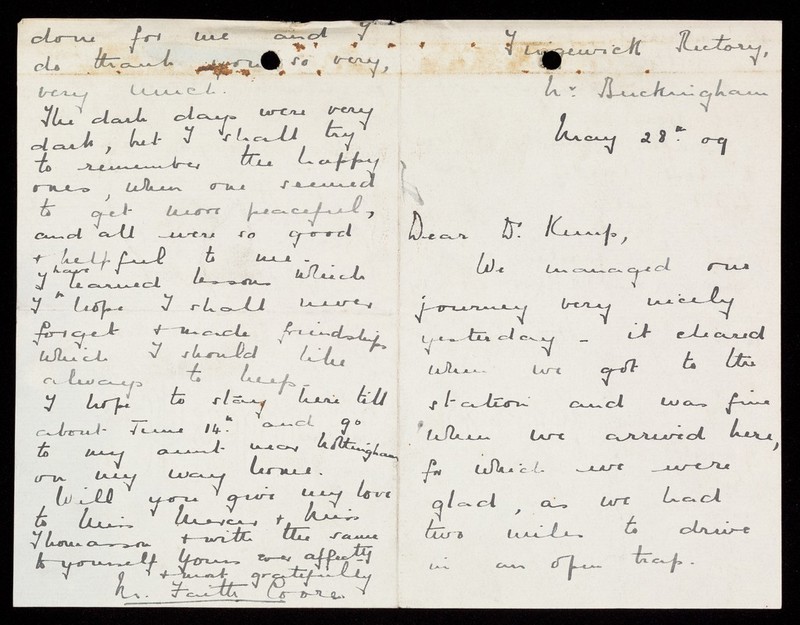 Tingewick Rectory,
Nr. Buckingham
May 28th 09
Dear Dr. Kemp,
We managed our
journey very nicely
yesterday - it cleared
when we got to the
station and was fine
when we arrived here,
for which we were
glad, as we had
two miles to drive
in an open trap.
done for me and I
do thank you so very,
very much.
The dark days were very
dark, but I shall try
to remember the happy
ones, when one seemed
to get more peaceful,
and all were so good
& helpful to me.
I have learned lessons which
I hope I shall never
forget & made friendships
which I should like
always to keep.
I hope to stay here till
about June 14th and go
to my aunt near Nottingham
on my way home.
Will you give my love
to Miss Mercer & Miss
Thomasson & with the same
to yourself Yours ever affectly
& most gratefully
M. Faith